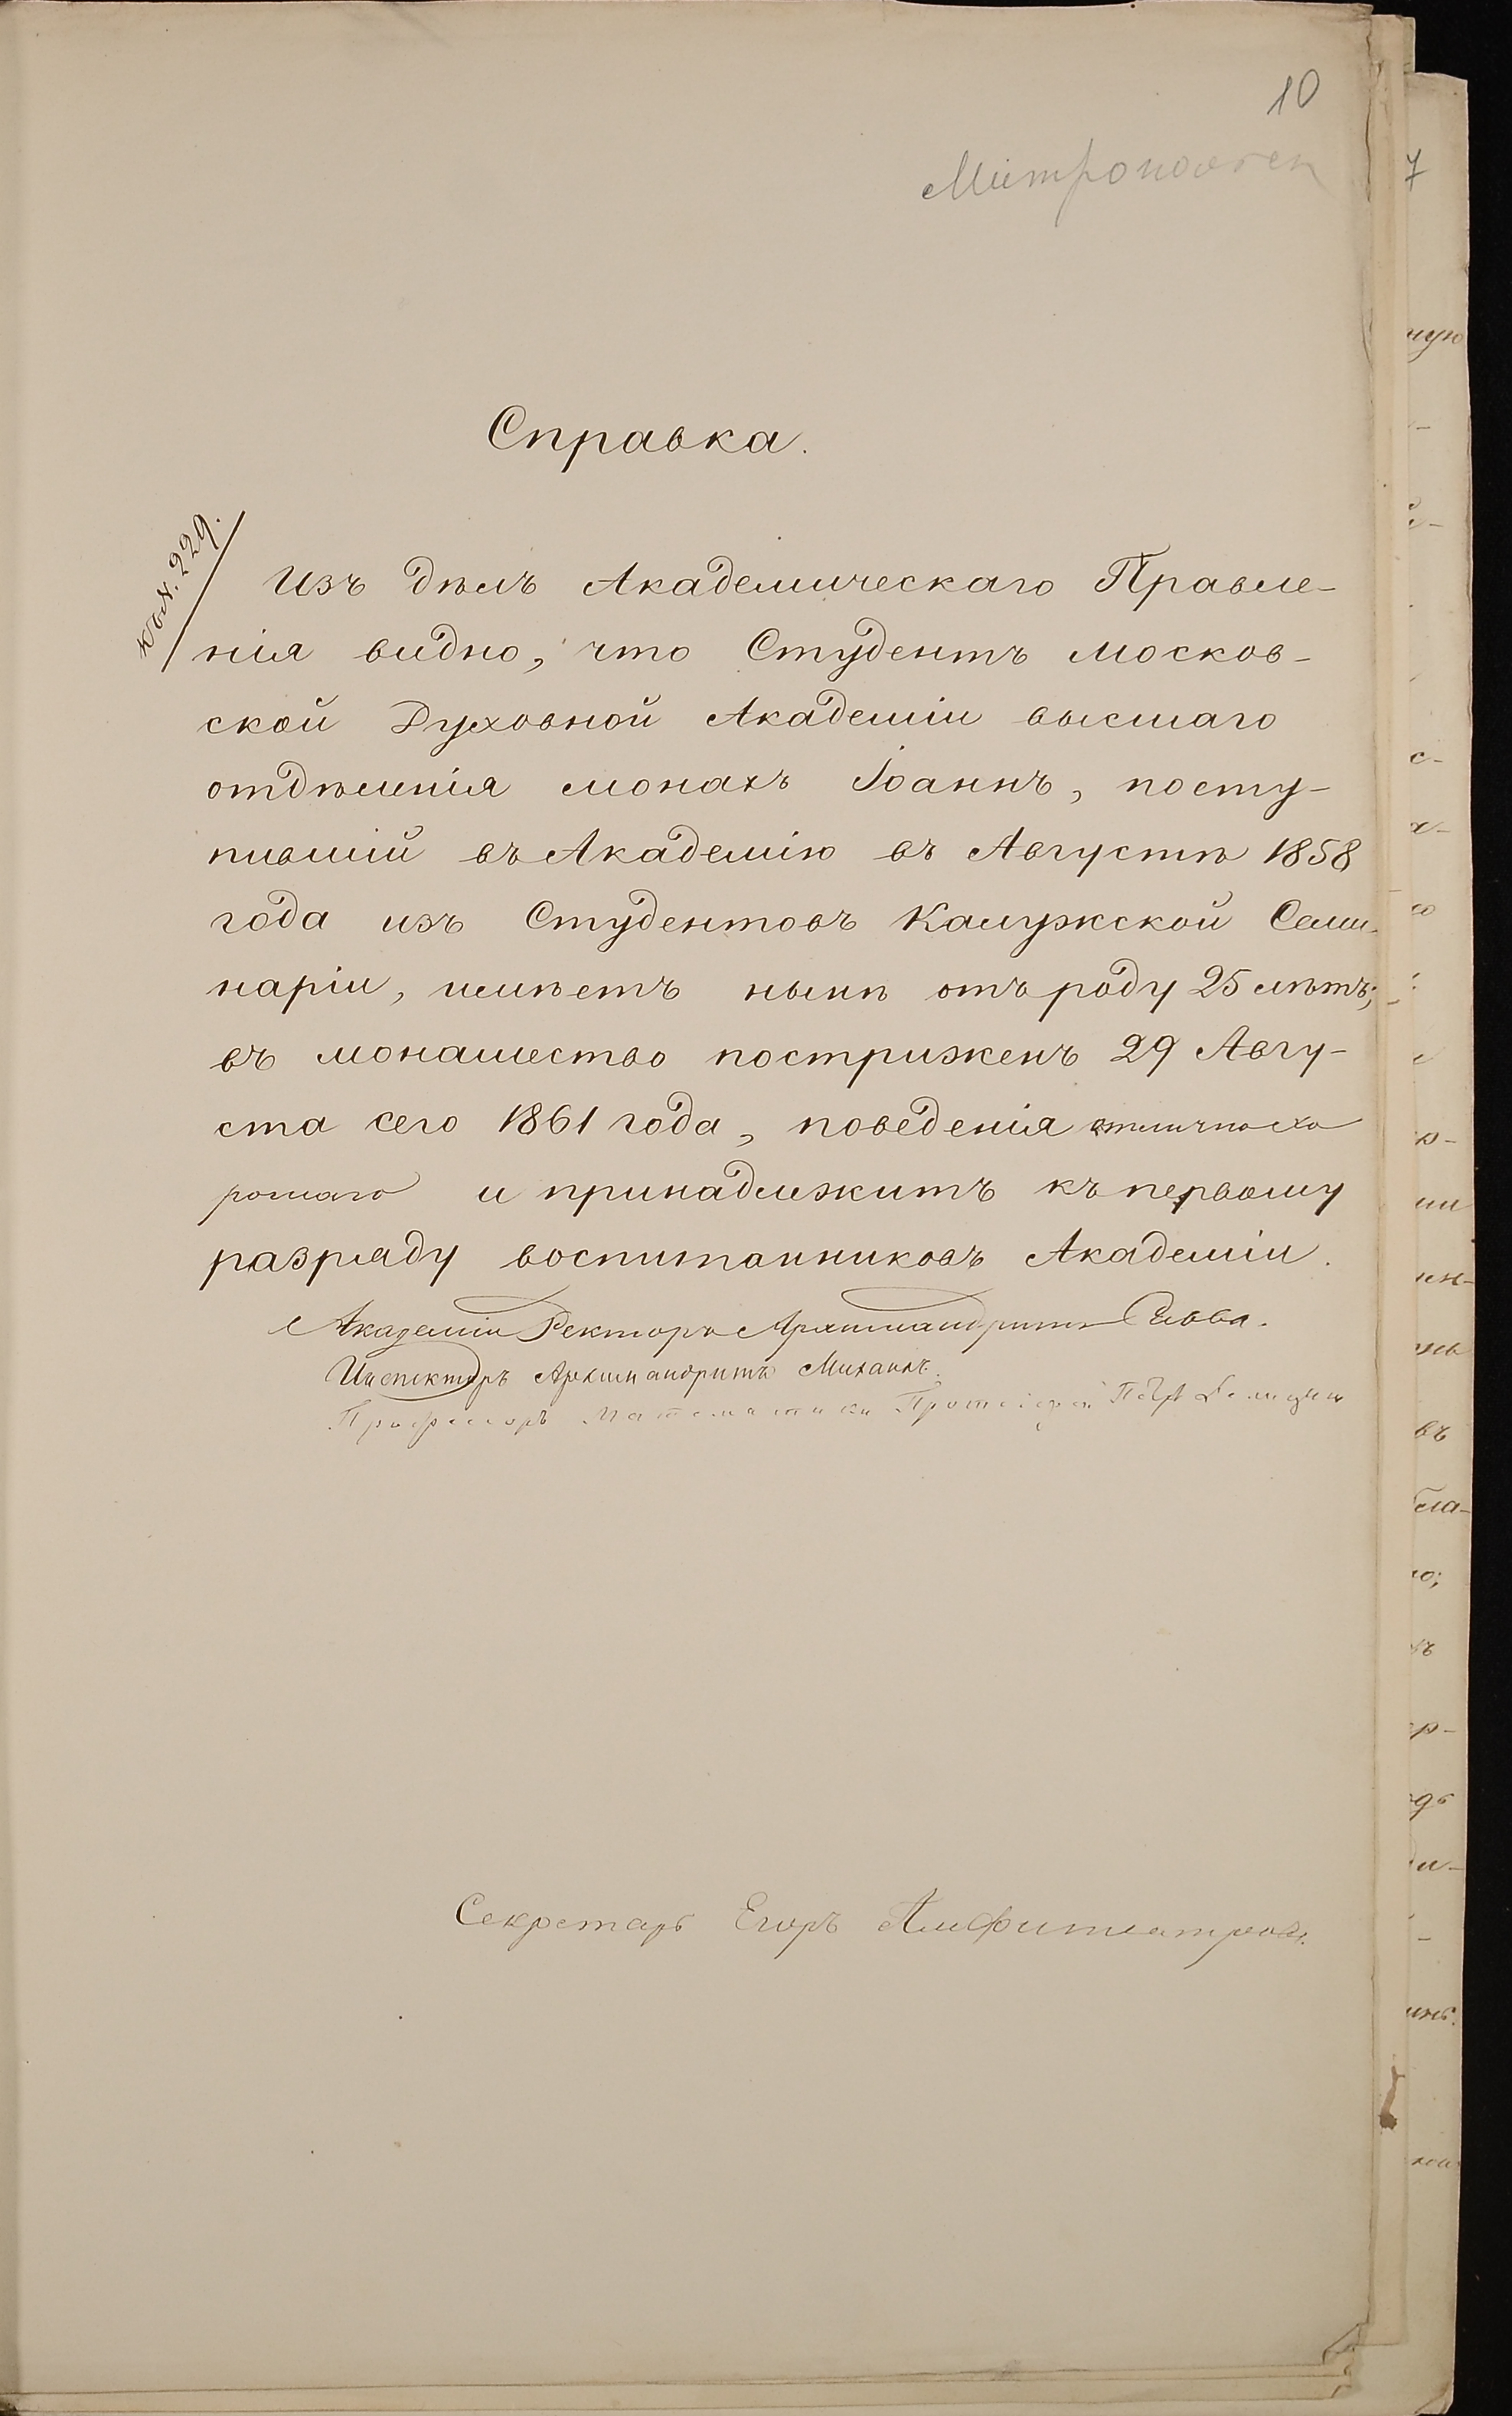 10
Справка.
къ N. 229.
Изъ дѣлъ Академическаго Правле-
нія видно, что Студентъ Москов-
ской Духовной Академіи высшаго
отдѣленія монахъ Іоаннъ, посту-
пившій въ Академію въ Августѣ 1858
года изъ Студентовъ Калужской Семи-
наріи, имѣетъ нынѣ отъ роду 25 лѣтъ;
въ монашество постриженъ 29 Авгу-
ста сего 1861 года, поведенія отлично хо
рошаго и принадлежитъ къ первому
разряду воспитанниковъ Академіи.
Академіи Ректоръ Архимандритъ Савва.
Инспекторъ Архимандритъ Михаилъ.
Профессоръ Математики Протоіерей Петр Делицынъ
Секретарь Егоръ Амфитеатровъ.